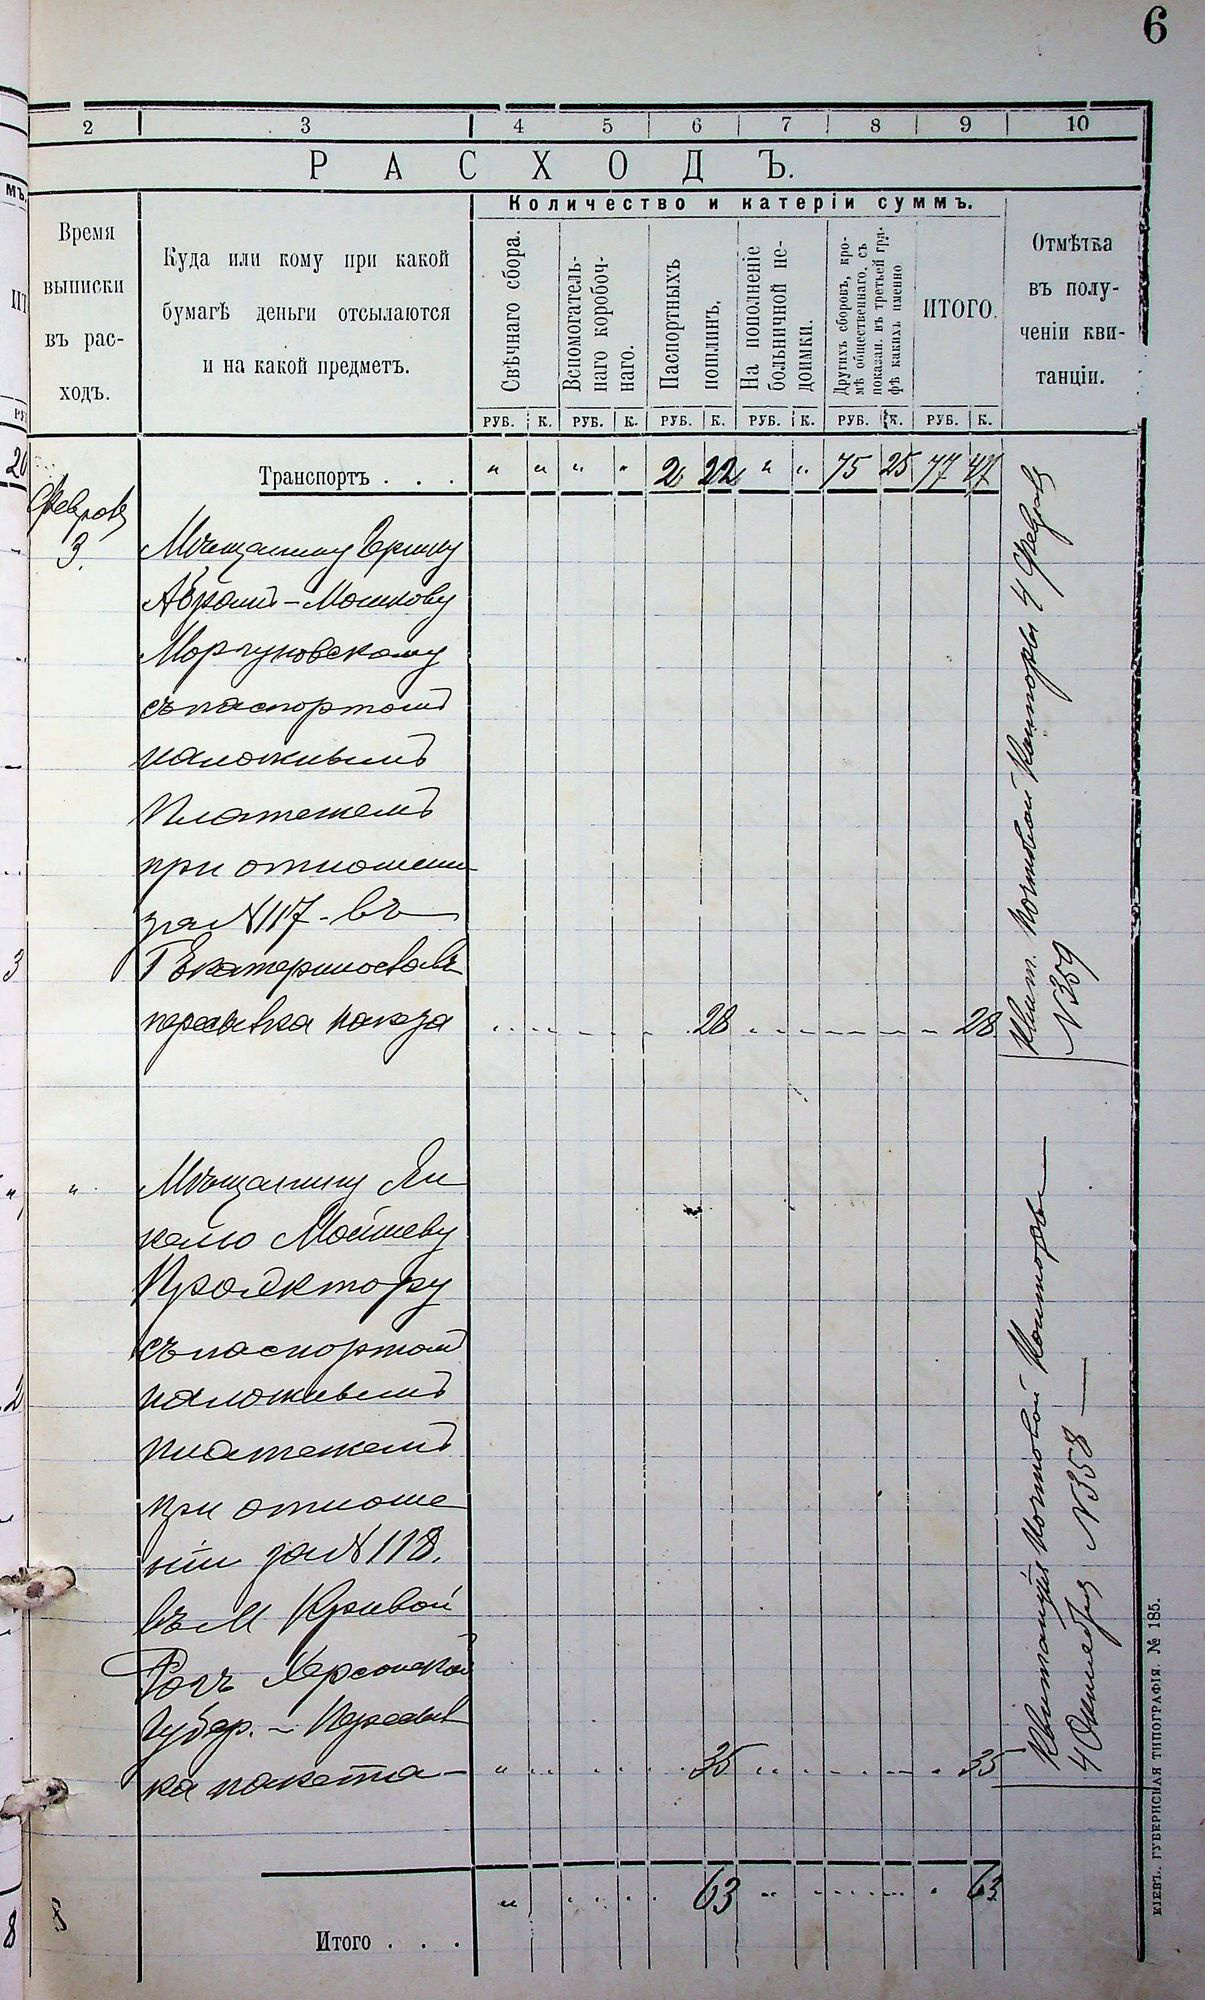 6
2 3 4 5 6 7 8 9 10
РАСХОДЪ.
Время
выписки
въ рас-
ходъ.
Куда или кому при какой
бумагѣ деньги отсылаются
и на какой предметъ.
Количество и катеріи суммъ.
Свѣчнаго сбора.
Вспомогатель-
наго коробоч-
наго.
Паспортныхъ
пошлинъ.
На пополненіе
больничной не-
доимки.
Другихъ сборовъ, кро-
мѣ общественнаго, съ
показан. въ третьей гра-
фѣ какихъ именно
ИТОГО.
Отмѣтка
въ полу-
ченіи кви-
танціи.
РУБ. К. РУБ. К. РУБ. К. РУБ. К. РУБ. К. РУБ. К.
Транспортъ . . . " " " " 2 22 " " 75 25 77 47
3.
Мѣщанину
Абрамъ-Мошкову
Моргуновскому
съ паспортомъ
наложнымъ
платежемъ
при отношеніи
за № 117 - въ
Г Екатеринославъ
пересылка
28 28
Квит. Почтовой Конторы 4 Февраля
№ 359
" Мѣщанину Ян
келю Мойшеву
съ паспортомъ
наложнымъ
платежемъ
при отноше
ніи за № 118.
въ М Кривой
Рогъ Херсонской
Губер. - Пересыл
ка пакета - " 35 35
Квитанція Почтовой Конторы
№ 358
Итого . . . " 63 " 63
8
КІЕВЪ. ГУБЕРНСКАЯ ТИПОГРАФІЯ. № 185.